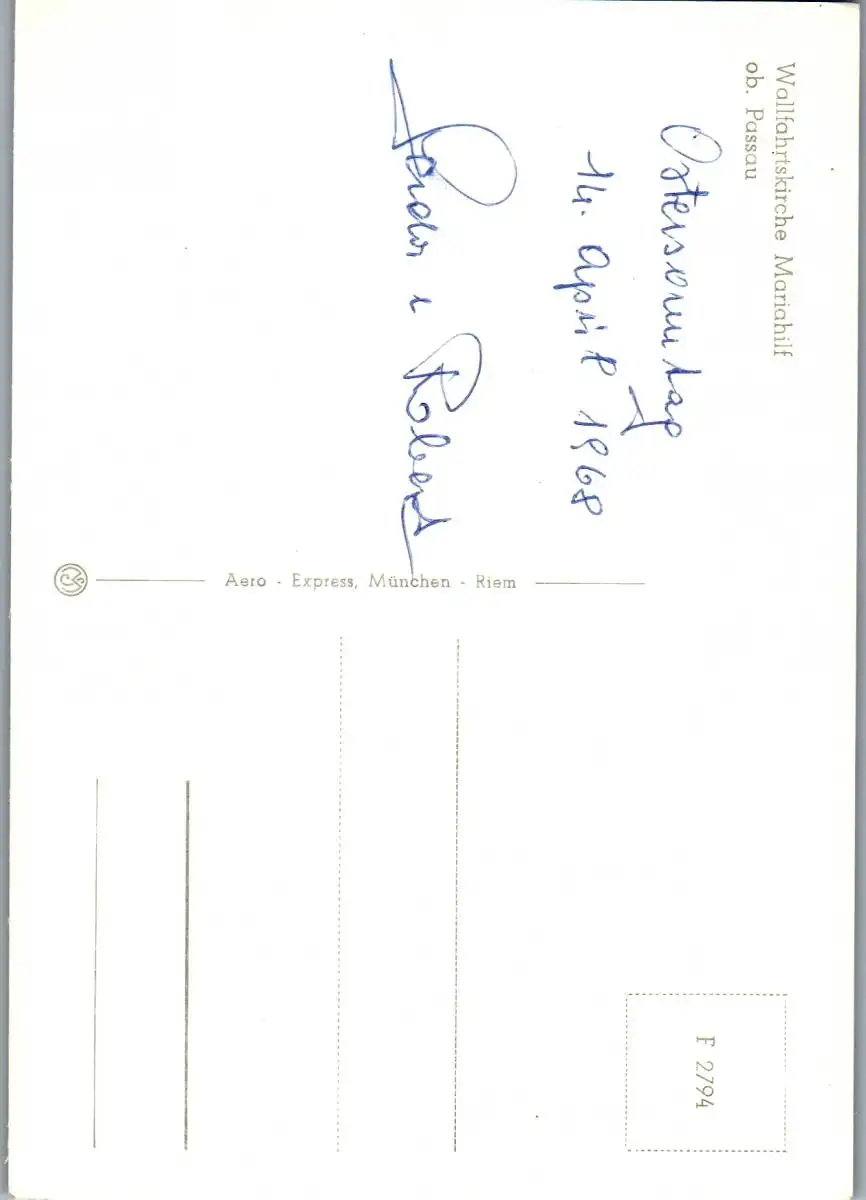 Wallfahrtskirche Mariahilf
ob. Passau
Ostersonntag
14. April 1968
u Robert
Aero - Express, München - Riem
F 2794